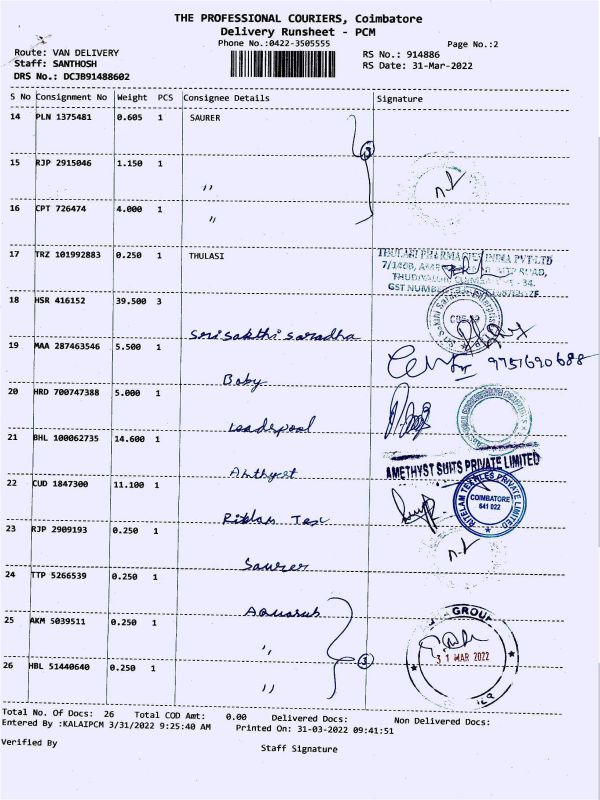 THE PROFESSIONAL COURIERS, Coimbatore
Delivery Runsheet - PCM
Phone No.:0422-3505555
Page No.:2
Route: VAN DELIVERY
RS No.: 914886
Staff: SANTHOSH
RS Date: 31-Mar-2022
DRS No.: DCJB91488602
S No Consignment No Weight PCS Consignee Details Signature
14 PLN 1375481 0.605 1 SAURER
3
15 RJP 2915046 1.150 1
"
16 CPT 726474 4.000 1
"
17 TRZ 101992883 0.250 1 THULASI
THULASI PHARMACIES INDIA PVT-LTD
ROAD,
GST NUMBE
18 HSR 416152 39.500 3
Sri sakthi saradha
19 MAA 287463546 5.500 1
9751690688
Baby
20 HRD 700747388 5.000 1
Leadspool
21 BHL 100062735 14.600 1
AMETHYST SUITS PRIVATE LIMITED
Amthyst
22 CUD 1847300 11.100 1
RITELAM TEXTILES PRIVATE LIMITED
COIMBATORE
641 022
Ritelam Tex
23 RJP 2909193 0.250 1
Saurer
24 TTP 5266539 0.250 1
Aquasub
25 AKM 5039511 0.250 1
GROUP
31 MAR 2022
"
3
26 HBL 51440640 0.250 1
"
Total No. Of Docs: 26 Total COD Amt: 0.00 Delivered Docs: Non Delivered Docs:
Entered By :KALAIPCM 3/31/2022 9:25:40 AM Printed On: 31-03-2022 09:41:51
Verified By
Staff Signature